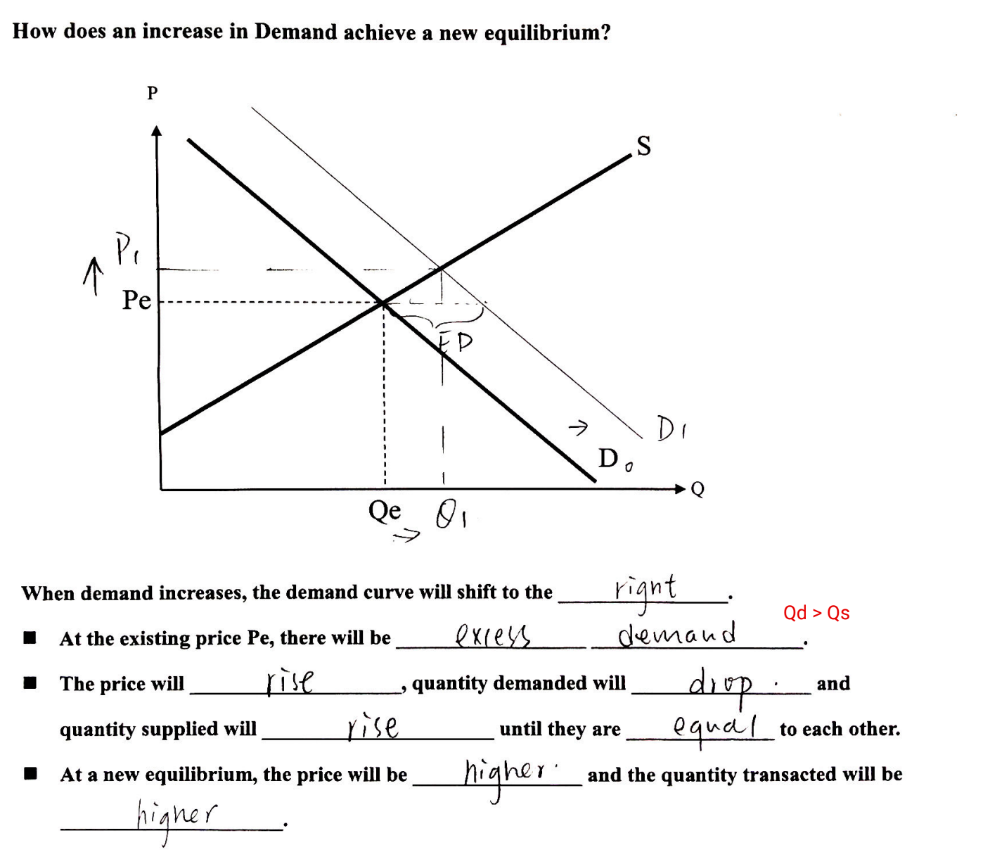 How does an increase in Demand achieve a new equilibrium?
P
S
P1
↑
Pe
ED
→
D1
D0
Q
Qe Q1
→
When demand increases, the demand curve will shift to the right.
Qd > Qs
■ At the existing price Pe, there will be excess demand.
■ The price will rise, quantity demanded will drop. and
quantity supplied will rise until they are equal to each other.
■ At a new equilibrium, the price will be higher. and the quantity transacted will be
higher.